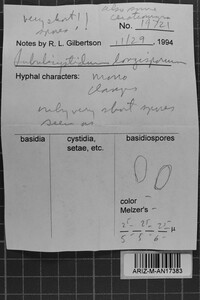 very short!!
spores!
Also some
No. 19721
Notes by R. L. Gilbertson 11/29, 1994
Tubulicrystidium longisporum
Hyphal characters: Mono
Clamps
only very short spores
seen as
basidia
cystidia,
setae, etc.
basidiospores
color -
Melzer's -
ARIZ-M-AN17383